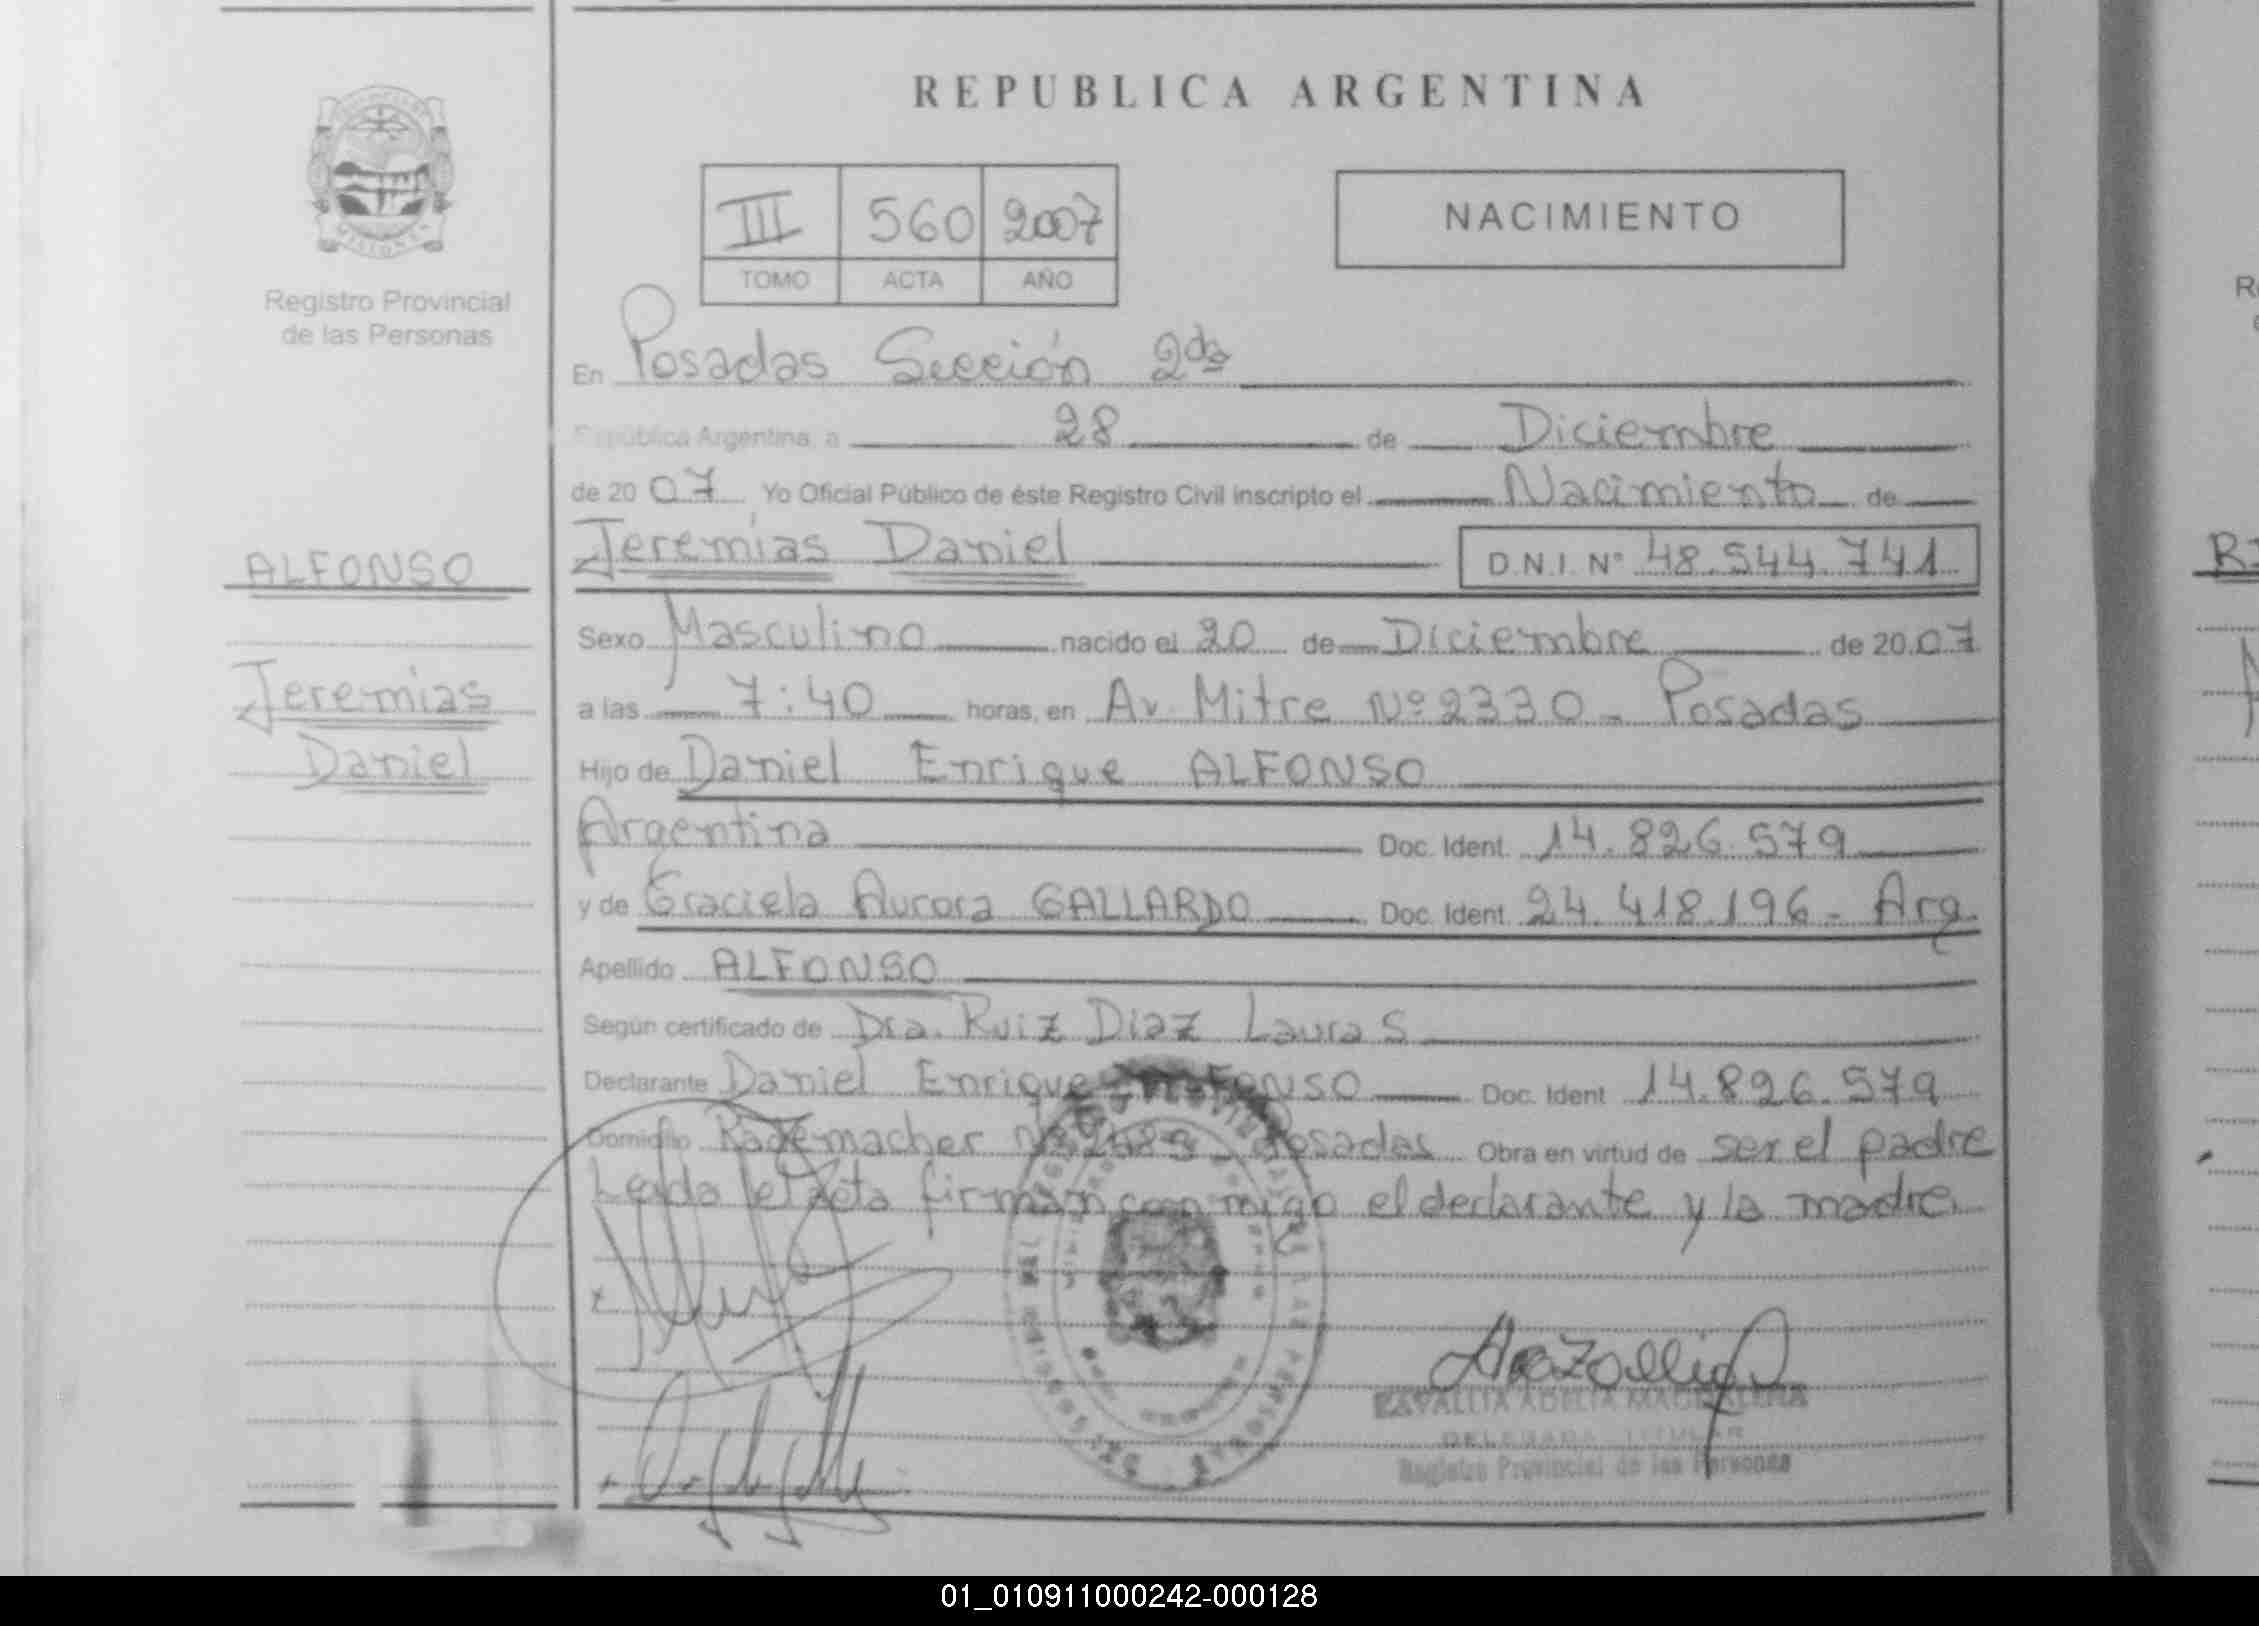 REPUBLICA ARGENTINA
MISIONES
Registro Provincial
de las Personas
III 560 2007
TOMO ACTA AÑO
NACIMIENTO
En Posadas Sección 2da
República Argentina, a 28 de Diciembre
de 2007 Yo Oficial Público de éste Registro Civil inscripto el Nacimiento de
Jeremías Daniel D.N.I. Nº 48.544.741
ALFONSO
Jeremías
Daniel
Sexo Masculino nacido el 20 de Diciembre de 2007
a las 7:40 horas, en Av. Mitre Nº 2330 - Posadas
Hijo de Daniel Enrique ALFONSO
Argentina Doc. Ident. 14.826.579
y de Graciela Aurora GALLARDO Doc. Ident. 24.418.196 - Arg.
Apellido ALFONSO
Según certificado de Dra. Ruiz Diaz Laura S
Declarante Daniel Enrique ALFONSO Doc. Ident 14.826.579
Domicilio Rademacher Posadas Obra en virtud de ser el padre
Leida el acta firman conmigo el declarante y la madre.
ADELIA MAGDALENA
DELEGADA TITULAR
Registro Provincial de las Personas
01_010911000242-000128